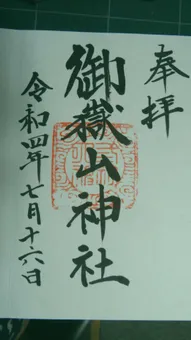 奉拝
御嶽山神社
令和四年七月十六日